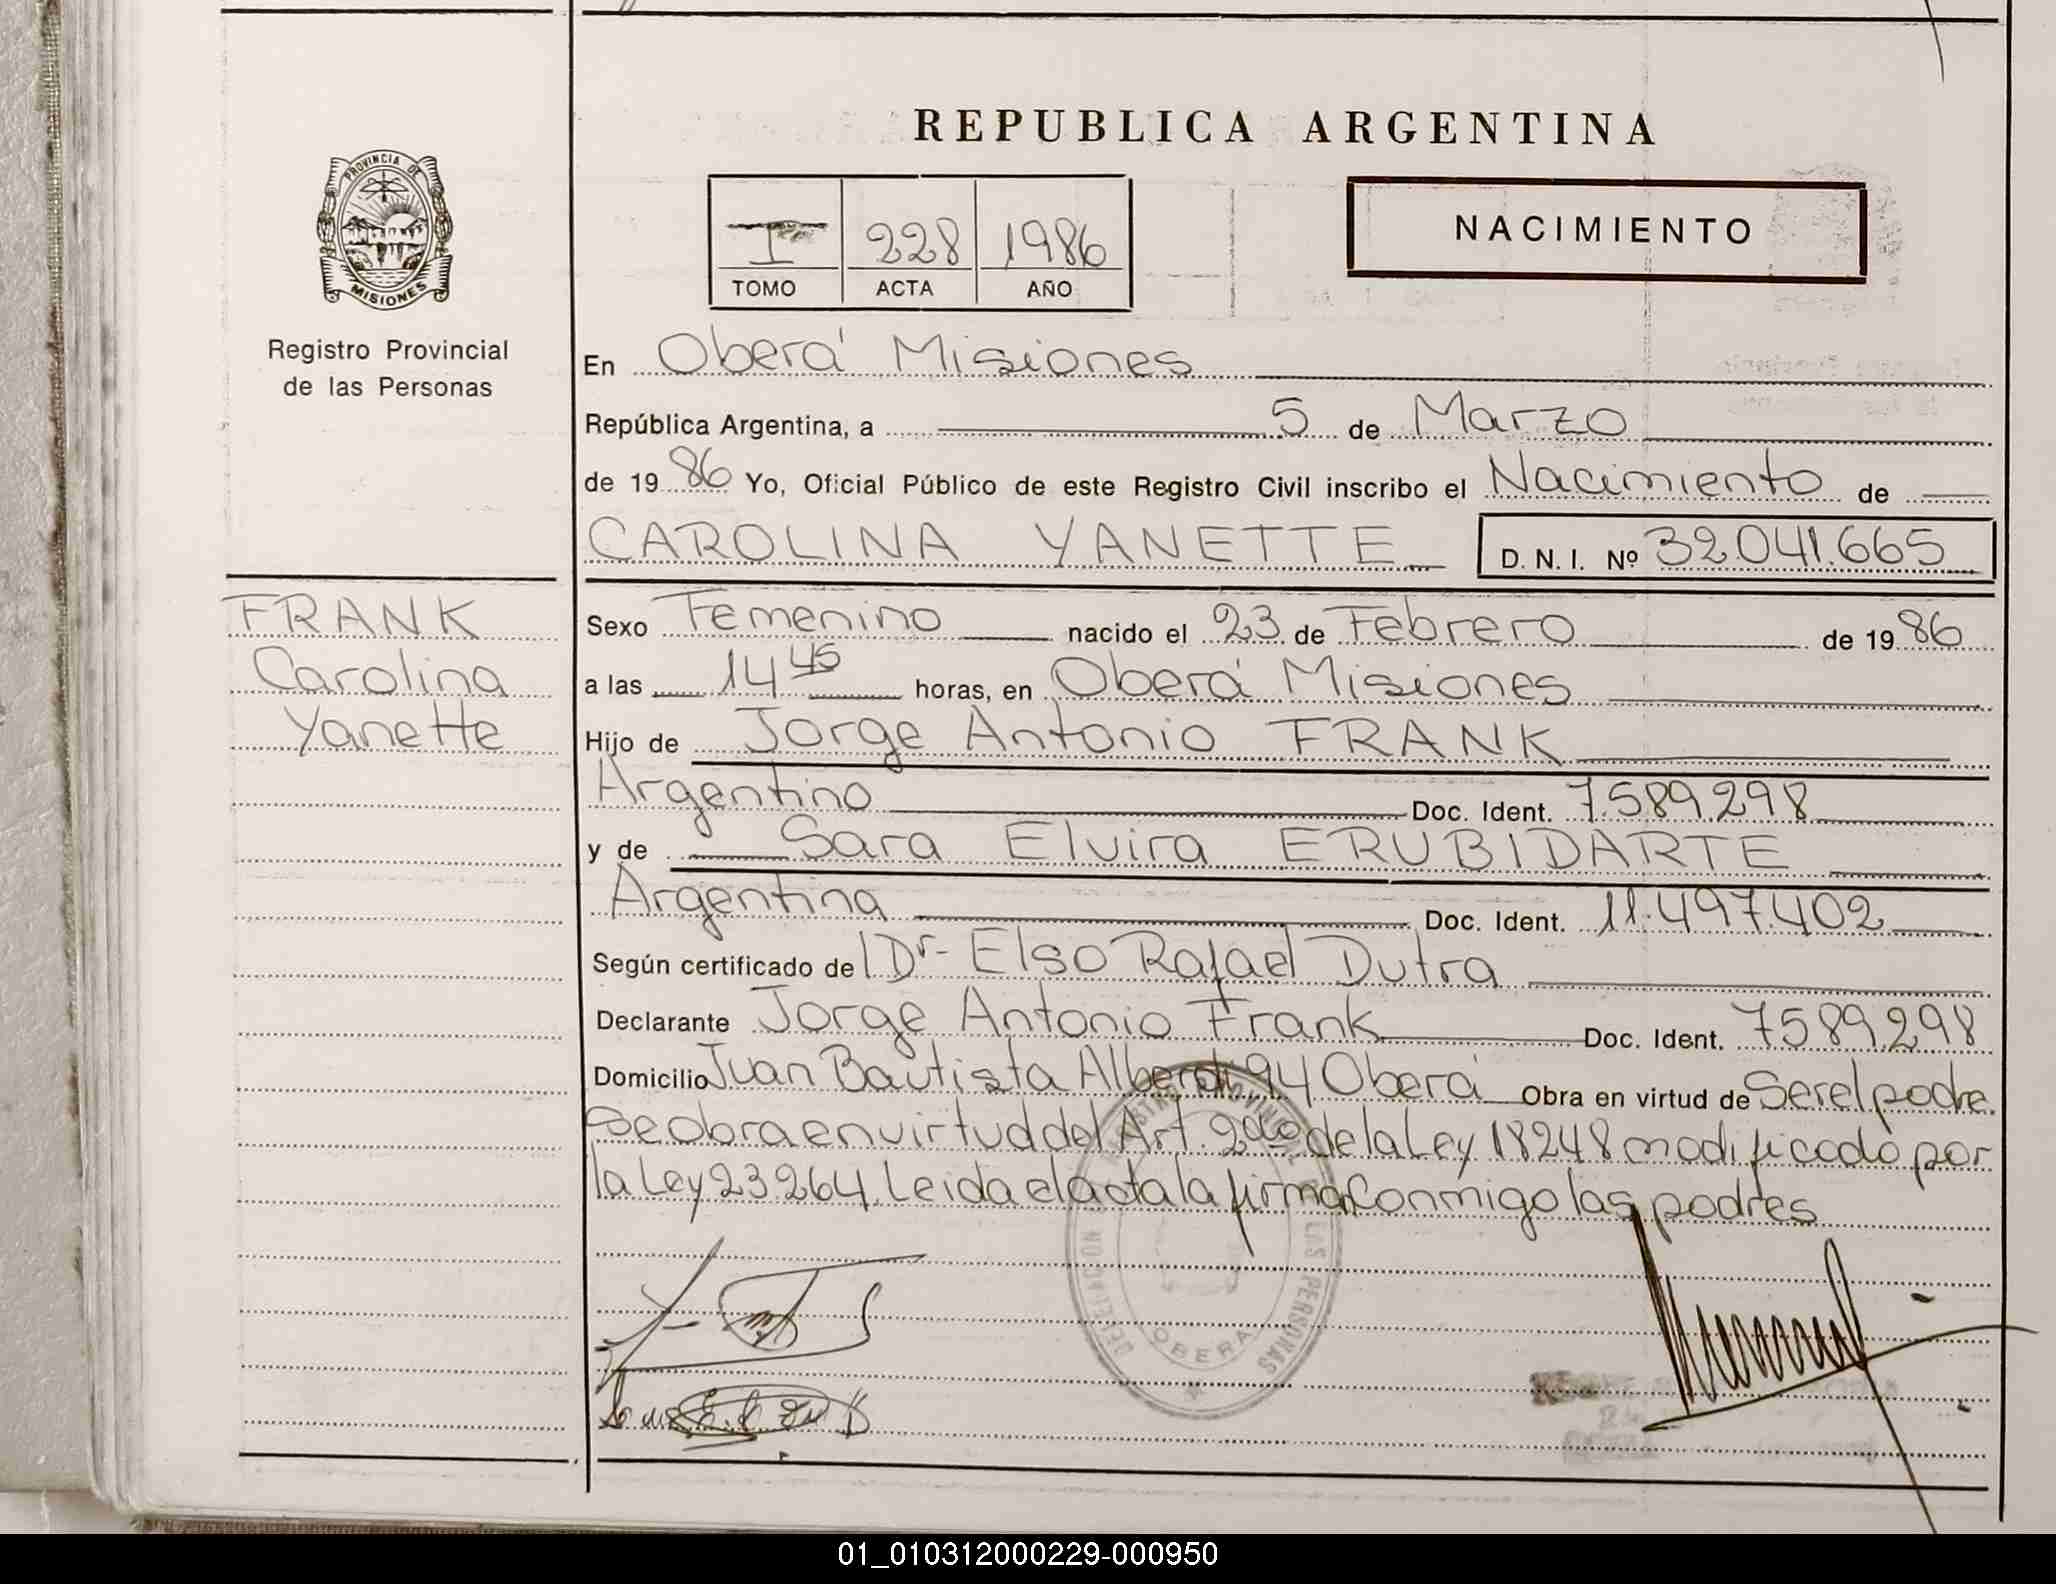 REPUBLICA ARGENTINA
PROVINCIA DE
MISIONES
Registro Provincial
de las Personas
I 228 1986
TOMO ACTA AÑO
NACIMIENTO
En Oberá Misiones
República Argentina, a 5 de Marzo
de 1986 Yo, Oficial Público de este Registro Civil inscribo el Nacimiento de
CAROLINA YANETTE D. N. I. Nº 32.041.665
FRANK
Carolina
Yanette
Sexo Femenino nacido el 23 de Febrero de 1986
a las 14 45 horas, en Oberá Misiones
Hijo de Jorge Antonio FRANK
Argentino Doc. Ident. 7.589.298
y de Sara Elvira ERUBIDARTE
Argentina Doc. Ident. 11.497.402
Según certificado de Dr- Elso Rafael Dutra
Declarante Jorge Antonio Frank Doc. Ident. 7.589.298
Domicilio Juan Bautista Alberdi 94 Oberá Obra en virtud de Ser el padre.
Se obra en virtud del Art. 2do de la Ley 18248 modificado por
la Ley 23.264. Leida el acta la firman conmigo las padres
DELEGACION REGISTRO PROVINCIAL DE LAS PERSONAS
OBERA
01_010312000229-000950